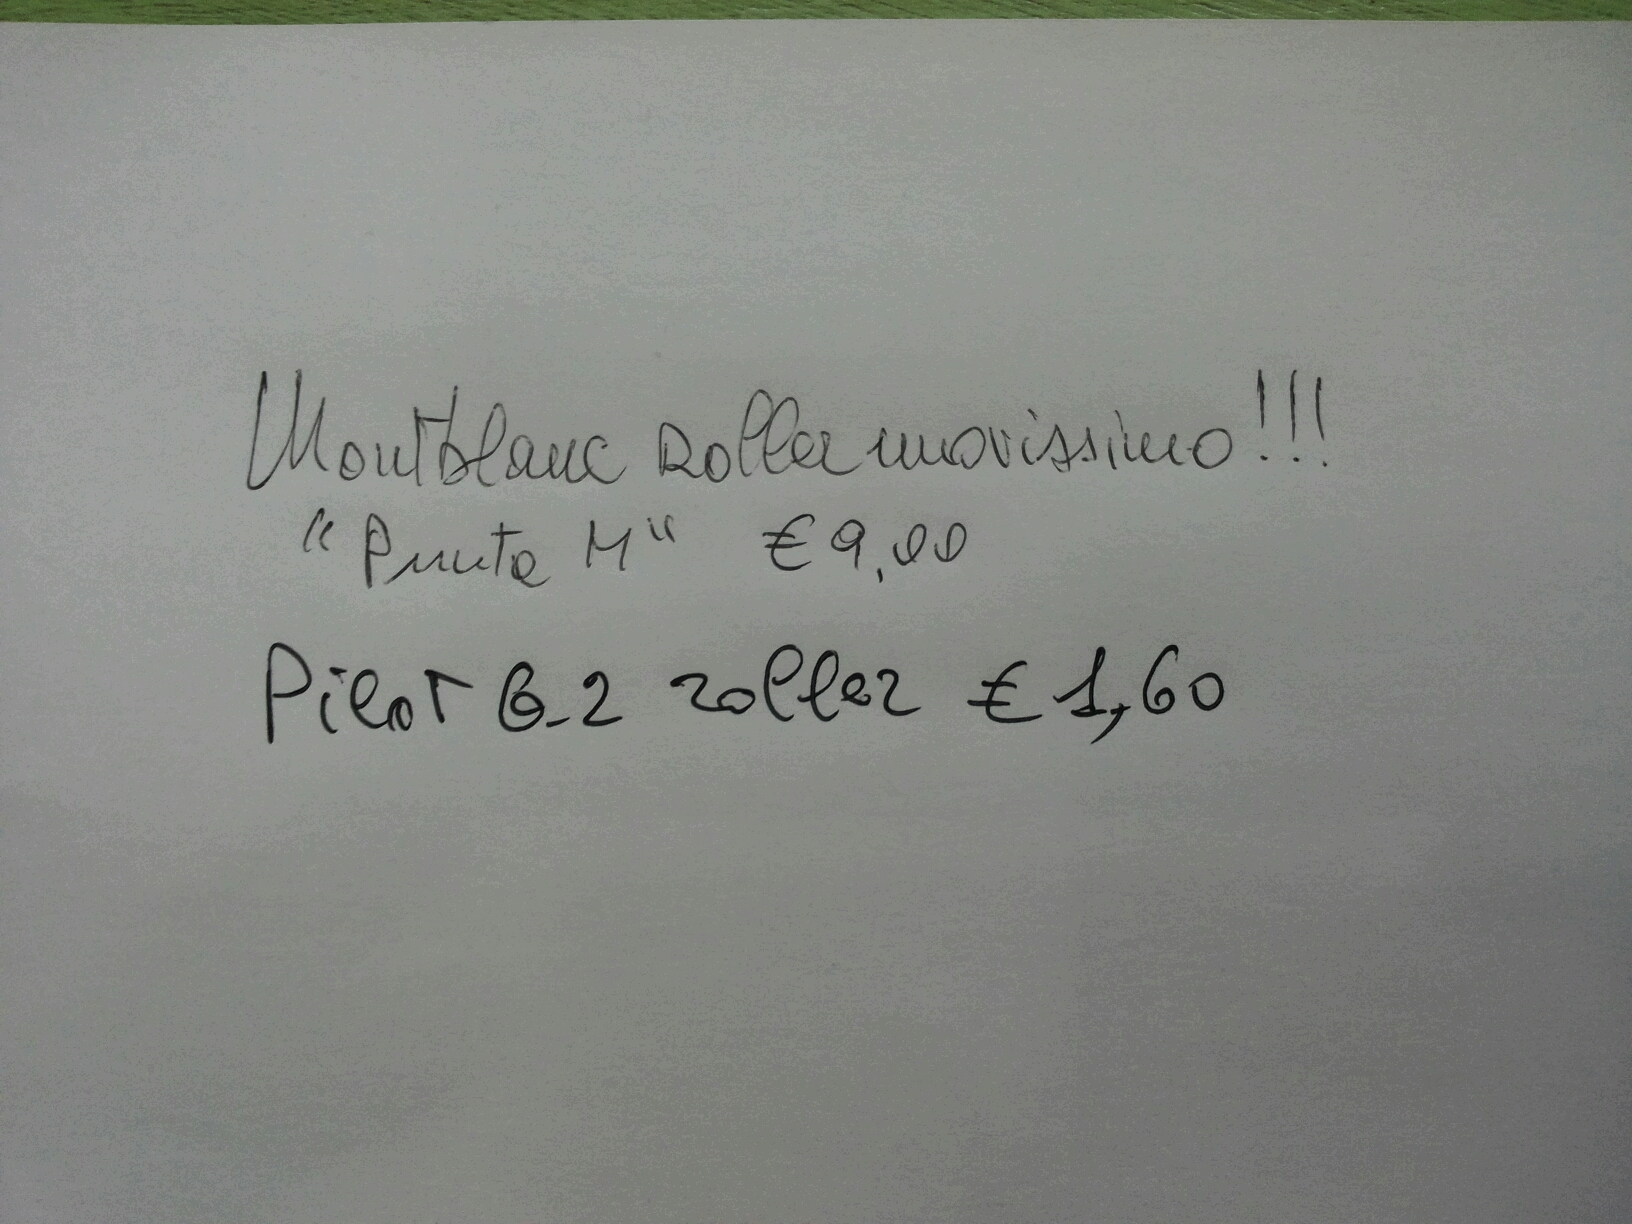 Montblanc roller nuovissimo!!!
"Punta M" € 9,00
Pilot G-2 roller € 1,60